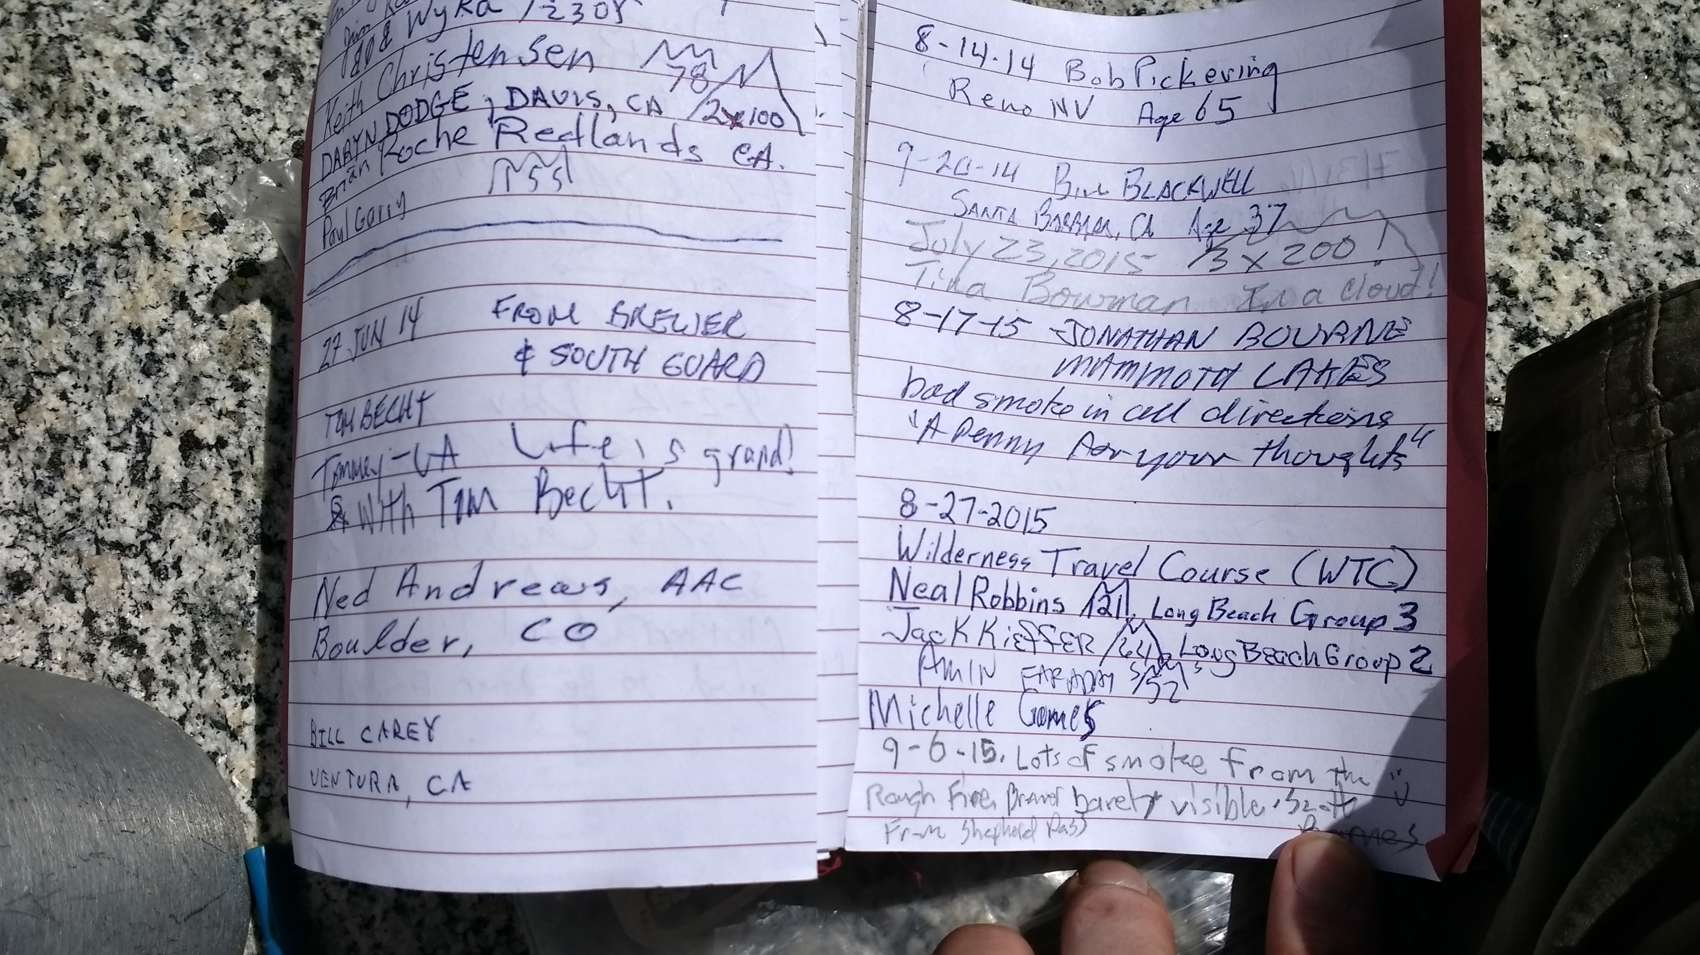 Wyka 1230
Keith Christensen
78
DARYN DODGE, DAVIS, CA 2x100
Brian Roche Redlands CA.
Paul Garry
27 JUN 14 FROM BREWER
& SOUTH GUARD
TOM BECHT
Tommey-CA Life is grand!
With Tom Becht.
Ned Andrews, AAC
Boulder, CO
BILL CAREY
VENTURA, CA
8-14-14 Bob Pickering
Reno NV Age 65
9-20-14 Bill BLACKWELL
SANTA BARBARA, CA Age 37
July 23, 2015 3x200!
Tina Bowman In a cloud!
8-17-15 JONATHAN BOURNE
MAMMOTH LAKES
bad smoke in all directions
"A penny for your thoughts"
8-27-2015
Wilderness Travel Course (WTC)
Neal Robbins 121, Long Beach Group 3
Jack Kieffer Long Beach Group 2
AMIN FARADAY
Michelle Gomes
9-6-15. Lots of smoke from the
Rough Fire, barely visible.
From Shepherd Pass